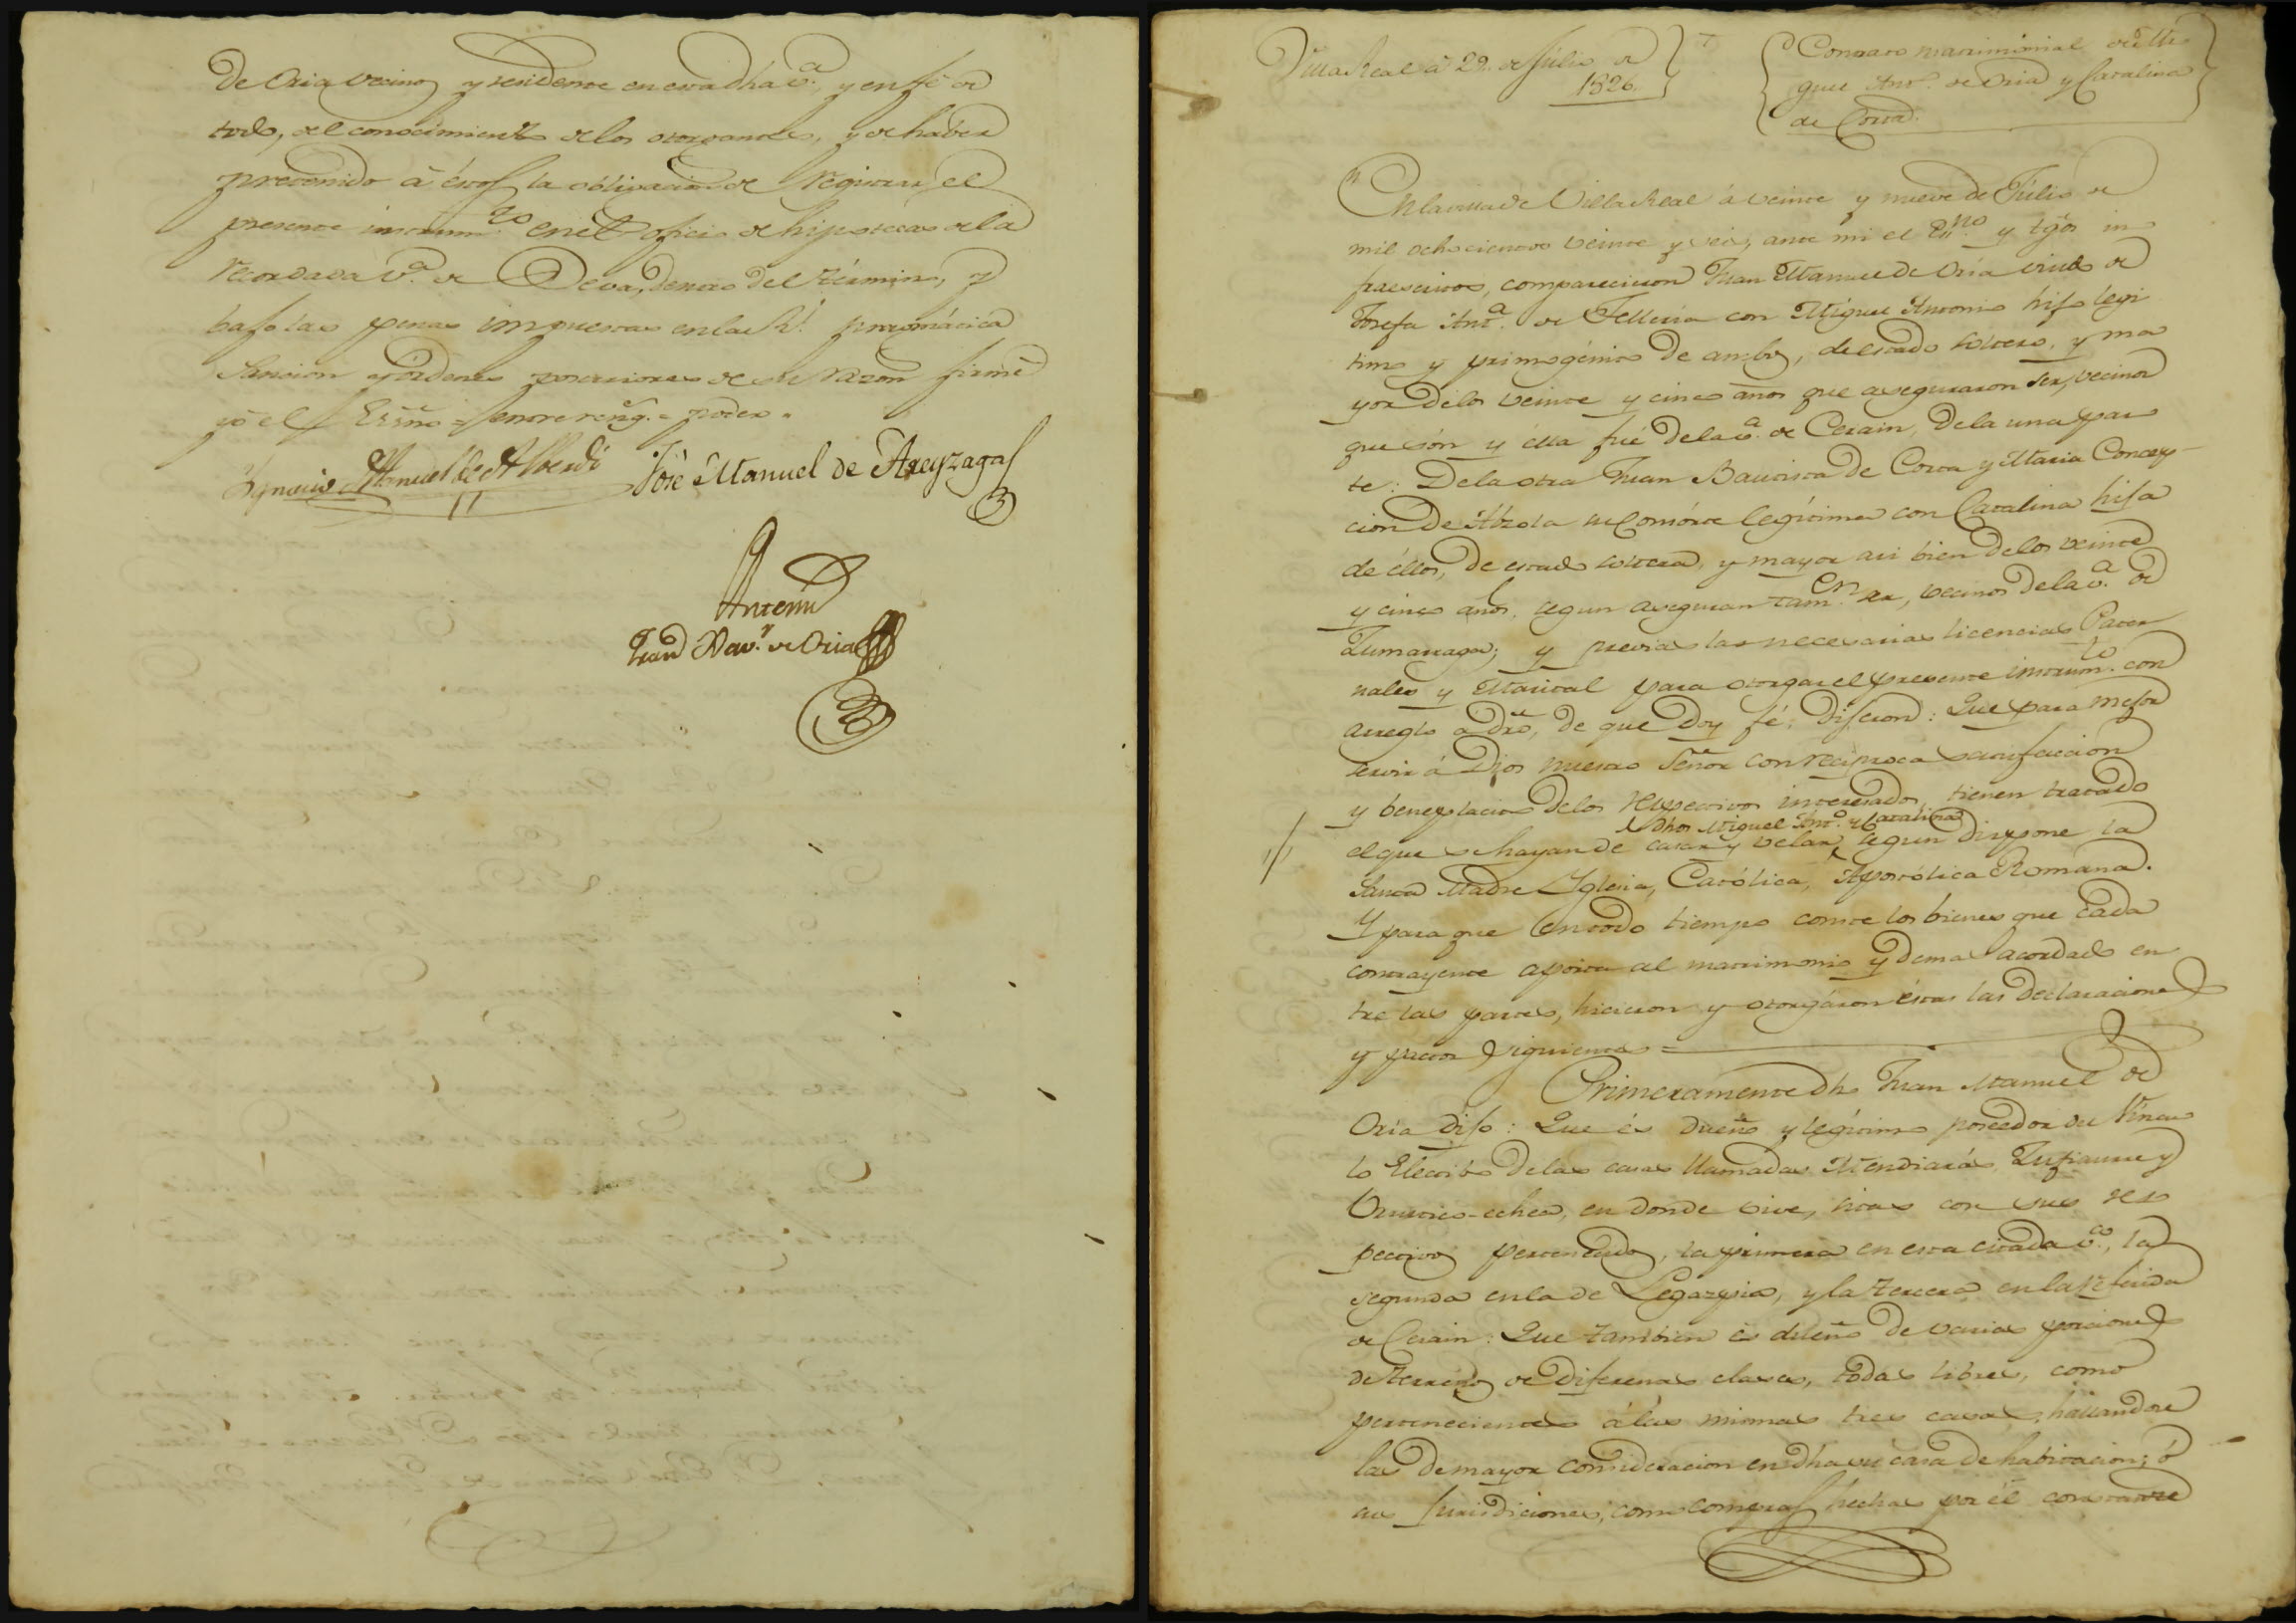 de Oria vecinos y residentes en esta dha v.ª y en fé de
todo, del conocimiento de los otorgantes, y de haber
prevenido á éstos la obligacion de registrar el
presente instrum.to en el oficio de hipotecas de la
recordada v.ª de Deva, dentro del término, y
bajo las penas impuestas en la R.l pracmática
Sancion y órdenes posteriores de su razon firmé
yó el Essño = entre reng.s = poder =
Ygnacio Manuel de Alberdi José Manuel de Areyzaga
Antemi
Juan Bau.ta de Oria
Villa Real á 29. de Júlio de
1826.
Contrato matrimonial de Mi
guel Ant.º de Oria y Catalina
de Corta.
En la villa de Villa Real á veinte y nueve de Júlio de
mil ochocientos veinte y seis, ante mi el Essno y tgos in
fraescritos, comparecieron Juan Manuel de Oria viudo de
Josefa Ant.ª de Telleria con Miguel Antonio hijo legi
timo y primogénito de ambos, de estado soltero, y ma
yor de los veinte y cinco años que aseguraron ser, vecinos
que són y élla fué de la v.ª de Cerain, de la una par
te: De la otra Juan Bautista de Corta y Maria Concep-
cion de su Consórte legitima con Catalina hija
de éllos, de estado soltera, y mayor asi bien de los veinte
y cinco años, segun aseguran tam.en ser, vecinos de la v.ª de
Zumarraga; y previas las necesarias licencias Pater
nales y Marital para otorgar el presente instrum.to con
arreglo a dro, de que Doy fé: Dijeron: Que para mejor
servir á Dios nuestro Señor con reciproca satisfaccion
y beneplacito de los respectivos interesados, tienen tratado
dhos Miguel Ant.º y Catalina
el que se hayan de casar y velar, segun dispone la
Santa Madre Yglesia, Católica, Apostólica Romana.
Y para que en todo tiempo conste los bienes que cada
contrayente aporta al matrimonio y demas acordado en
tre las partes, hicieron y otorgáron éstas las declaraciones
y pactos siguientes =
Primeramente dho Juan Manuel de
Oria dijo: Que és dueño y legitimo poseedor del Víncu
lo Electivo de las casas llamadas Mendiarás,
en donde vive, sitas con sus res
pectivos pertenecidos, la primera en esta citada v.ª, la
segunda en la de Legazpia, y la tercera en la referida
de Cerain: Que tambien és dueño de varias porciones
de terrenos de diferentes clases, todas libres, como
pertenecientes á las mismas tres casas, hallandose
las de mayor consideracion en dha su casa de habitacion, ó
sus Jurisdiciones, como compras hechas por él constante